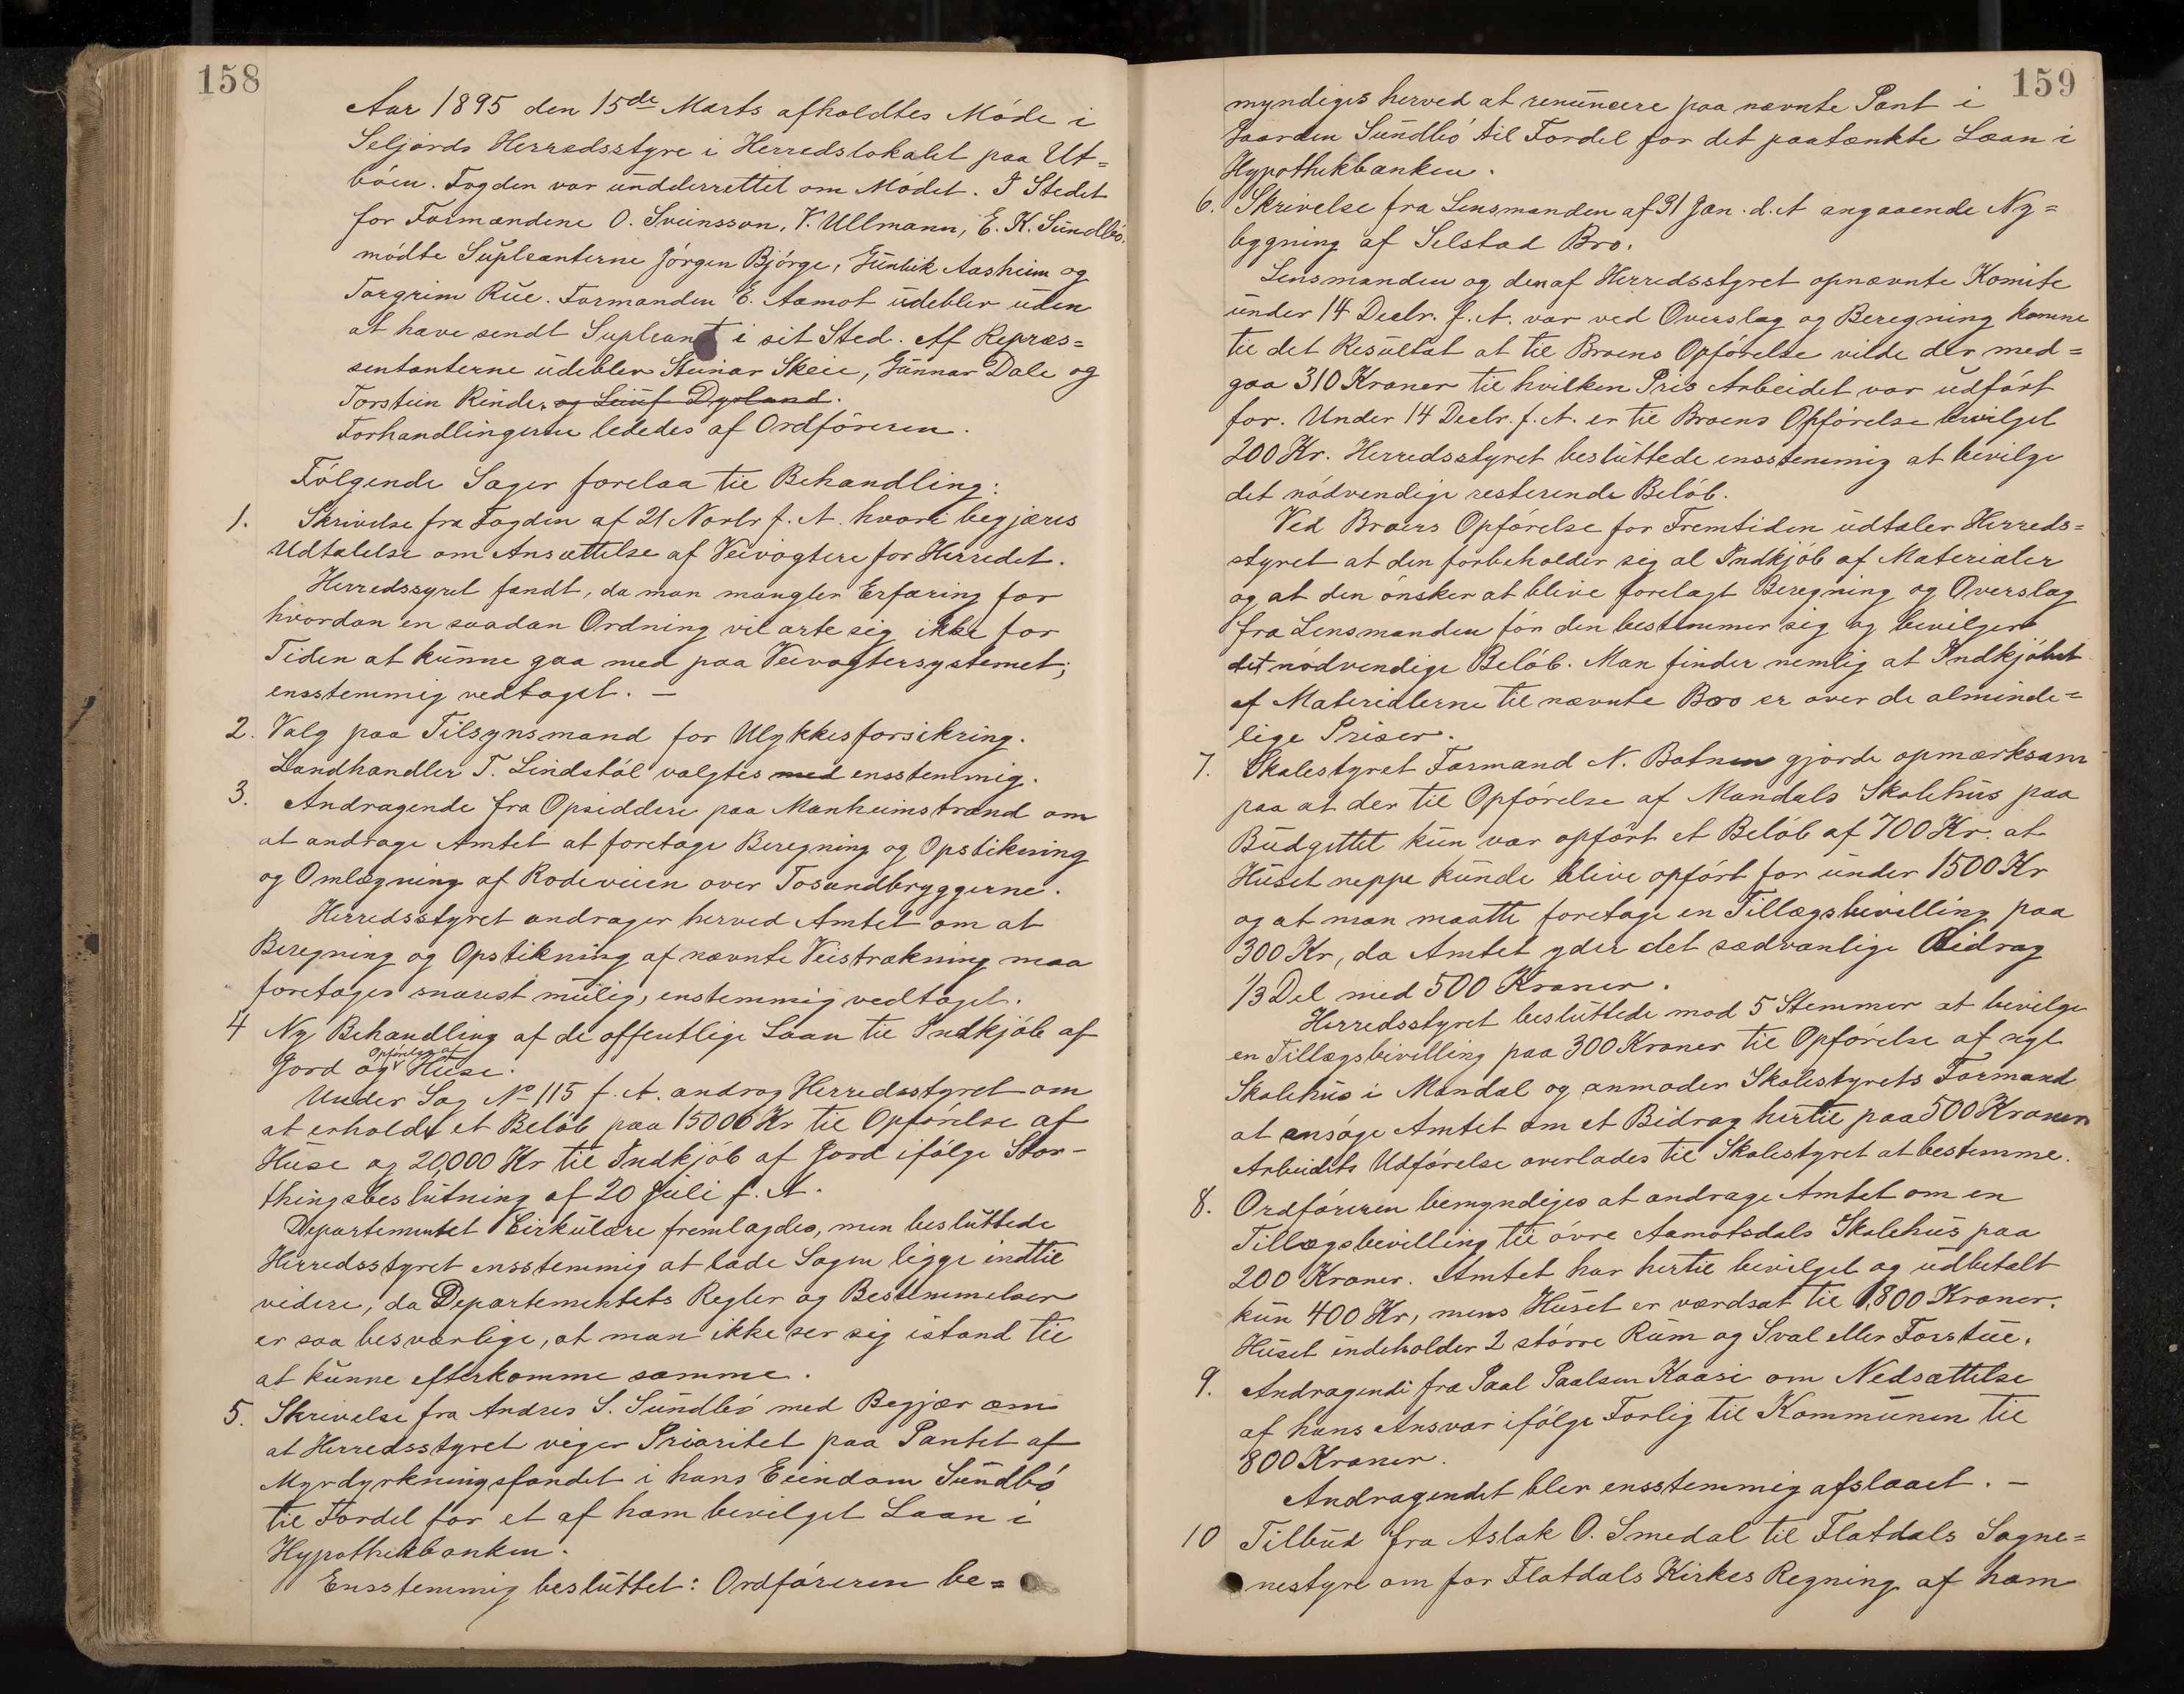 158
Aar 1895 den 15de Marts afholdtes Møde i
Seljords Herredsstyre i Herredslokalet paa Ut=
bøen. Fogden var undderrettet om Mødet. I Stedet
for Formændene O. Sveinsson, V. Ullmann, E. K. Sundbø,
mødte Supleanterne Jørgen Bjørge, Guntuik Aasheim og
Torgrim Rue. Formanden E. Aamot udeblev uden
at have sendt Supleant i sit Sted. Af Repræs=
sentanterne udeblev Steinar Skeie, Gunnar Dale og
Torstein Rinde. og Leiuf Dyrland.
Forhandlingerne lededes af Ordføreren.
Følgende Sager forelaa til Behandling:
1. Skrivelse fra Fogden af 21 Novbr f. A. hvori begjæres
Udtalelse om Ansættelse af Veivogtere for Herredet.
Herredssyret fandt, da man mangler Erfaring for
hvordan en saadan Ordning vil arte sig ikke for
Tiden at kunne gaa med paa Veivogtersystemet;
ensstemmig vedtaget. —
2. Valg paa Tilsynsmand for Ulykkesforsikring.
Landhandler T. Lindstøl valgtes med ensstemmig.
3. Andragende fra Opsiddere paa Manheimstrand om
at andrage Amtet at foretage Beregning og Opstikning
og Omlægning af Rodeveien over Tosundbryggerne.
Herredsstyret andrager herved Amtet om at
Beregning og Opstikning af nævnte Veistrækning maa
foretages snarest mulig, enstemmig vedtaget.
4 Ny Behandling af de offentlige Laan til Indkjøb af
Opførelse af
Jord og Huse.
Under Sag No 115 f. A. androg Herredsstyret om
at erholde et Beløb paa 15000 Kr til Opførelse af
Huse og 20,000 Kr til Indkjøb af Jord ifølge Stor-
thingsbeslutning af 20 Juli f. A.
Departementet Cirkulære fremlagdes, men besluttede
Herredsstyret ensstemmig at lade Sagen ligge indtil
videre, da Departementets Regler og Bestemmelser
er saa besværlige, at man ikke ser sig istand til
at kunne efterkomme samme.
5. Skrivelse fra Andres S. Sundbø med Begjær om
at Herredsstyret viger Prioritet paa Pantet af
Myrdyrkningsfondet i hans Eiendom Sundbø
til Fordel for et af ham bevilget Laan i
Hypothekbanken.
Ensstemmig besluttet: Ordføreren be=
159
myndiges herved at renuncere paa nævnte Pant i
Gaarden Sundbø til Fordel for det paatænkte Laan i
Hypothekbanken.
6. Skrivelse fra Lensmanden af 31 Jan. d. A angaaende Ny=
bygning af Selstad Bro.
Lensmanden og den af Herredsstyret opnævnte Komite
under 14 Decbr. f. A. var ved Overslag og Beregning komne
til det Resultat at til Broens Opførelse vilde der med=
gaa 310 Kroner til hvilken Pris Arbeidet var udført
for. Under 14 Decbr. f. A. er til Broens Opførelse bevilget
200 Kr. Herredsstyret besluttede ensstemmig at bevilge
det nødvendige resterende Beløb.
Ved Broers Opførelse for Fremtiden udtaler Herreds=
styret at den forbeholder sig al Indkjøb af Materialer
og at den ønsker at blive forelagt Beregning og Overslag
fra Lensmanden før den bestemmer sig og bevilger
det nødvendige Beløb. Man finder nemlig at Indkjøbet
af Materialerne til nævnte Bro er over de alminde=
lige Priser.
7. Skolestyret Formand N. Botnen gjorde opmærksam
paa at der til Opførelse af Mandals Skolehus paa
Budgettet kun var opført et Beløb af 700 Kr. at
Huset neppe kunde blive opført for under 1500 Kr
og at man maatte foretage en Tillægsbevilling paa
300 Kr, da Amtet yder det sædvanlige Bidrag
1/3 Del med 500 Kroner.
Herredsstyret besluttede mod 5 Stemmer at bevilge
en Tillægsbevilling paa 300 Kroner til Opførelse af nyt
Skolehus i Mandal og anmoder Skolestyrets Formand
at ansøge Amtet om et Bidrag hertil paa 500 Kroner
Arbeidets Udførelse overlades til Skolestyret at bestemme.
8. Ordføreren bemyndiges at andrage Amtet om en
Tillægsbevilling til øvre Aamotsdals Skolehus paa
200 Kroner. Amtet har hertil bevilget og udbetalt
kun 400 Kr, mens Huset er værdsat til 1,800 Kroner.
Huset indeholder 2 større Rum og Sval eller Forstue.
9. Andragende fra Paal Paalsen Kaasi om Nedsættelse
af hans Ansvar ifølge Forlig til Kommunen til
800 Kroner.
Andragendet blev ensstemmig afslaaet. —
10 Tilbud fra Aslak O. Smedal til Flatdals Sogne=
nestyre om for Flatdals Kirkes Regning af ham